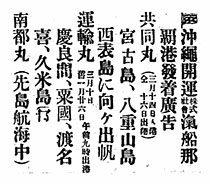 沖繩開運株式會社滊船那
覇港發着廣告
共同丸（三月十四日入港仝十六日出港）
宮古島、八重山島
西表島に向ヶ出帆
運輸丸三月十日入港仝一月廿六日午前九時出港
慶良間、粟國、渡名
喜、久米島行
南都丸（先島航海中）